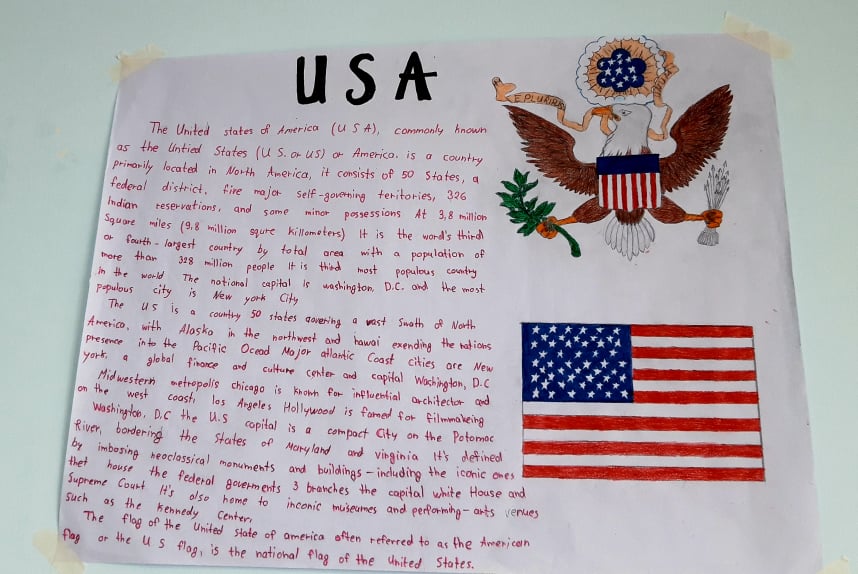 USA
E PLURIBUS
The United states of America (USA), commonly known
as the Untied States (U.S. or US) or America. is a country
primarily located in North America, it consists of 50 States, a
federal district, five major self-governing territories, 326
Indian reservations, and some minor possessions At 3,8 million
Square miles (9,8 million squre killometers) It is the word's third
or fourth-largest country by total area with a population of
more than 328 million people It is third most populous country
in the world The national capital is washington, D.C. and the most
populous city is New york City
The US is a country 50 states covering a vast Swath of North
America, with Alaska in the northwest and hawai exending the nations
presence into the Pacific Ocead Major atlantic Coast cities are New
york, a global finance and culture center and capital Washington, D.C
Midwestern metropolis chicago is known for influential architector and
on the west coast, los Angeles Hollywood is famed for filmmakeing
Washington, D.C the U.S capital is a compact City on the Potomac
River, bordering the States of Maryland and virginia It's defined
by imbosing neoclassical monuments and buildings - including the iconic ones
thet house the federal goverments 3 branches the capital white House and
Supreme Court It's also home to inconic museumes and performing-arts venues
such as the Kennedy Center.
The flag of the United state of america often referred to as the American
flag or the U S flag, is the national flag of the United States.